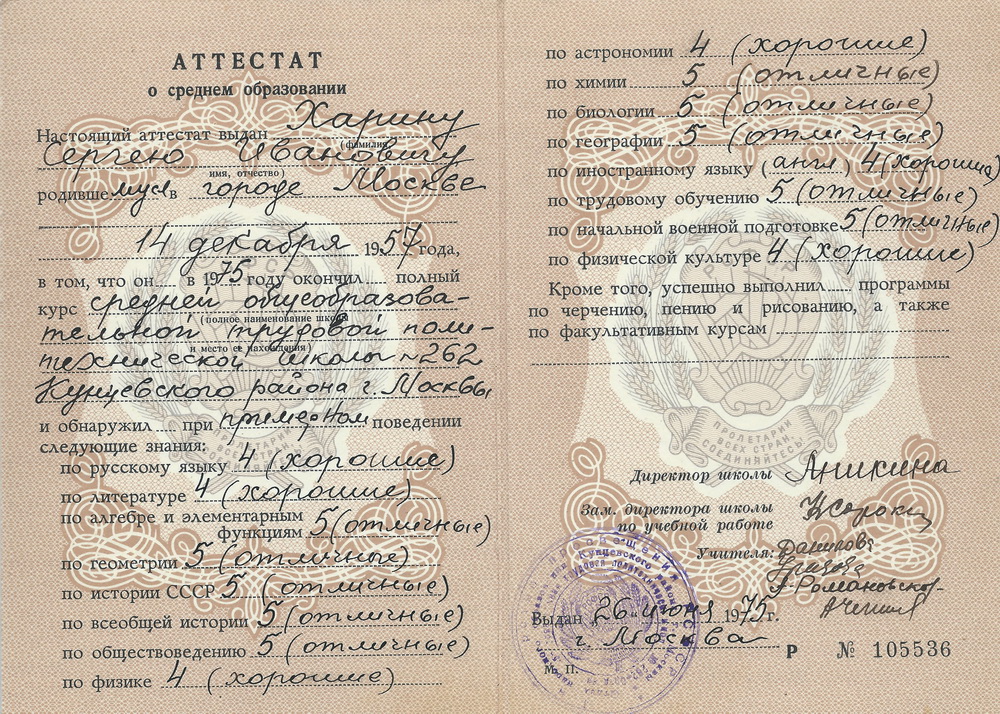 АТТЕСТАТ
о среднем образовании
Настоящий аттестат выдан Харину
(фамилия)
Сергею Ивановичу
имя, отчество)
родившемуся в городе Москве
14 декабря 1957 года,
в том, что он в 1975 году окончил полный
курс средней общеобразова-
(полное наименование школы
тельной трудовой поли-
и место ее нахождения)
технической школы № 262
Кунцевского района г. Москвы
и обнаружил при примерном поведении
следующие знания:
по русскому языку 4 (хорошие)
по литературе 4 (хорошие)
по алгебре и элементарным
функциям 5 (отличные)
по геометрии 5 (отличные)
по истории СССР 5 (отличные)
по всеобщей истории 5 (отличные)
по обществоведению 5 (отличные)
по физике 4 (хорошие)
по астрономии 4 (хорошие)
по химии 5 (отличные)
по биологии 5 (отличные)
по географии 5 (отличные)
по иностранному языку (англ) 4 (хорошие)
по трудовому обучению 5 (отличные)
по начальной военной подготовке 5 (отличные)
по физической культуре 4 (хорошие)
Кроме того, успешно выполнил программы
по черчению, пению и рисованию, а также
по факультативным курсам
ПРОЛЕТАРИИ
ВСЕХ СТРАН,
СОЕДИНЯЙТЕСЬ!
Директор школы Аникина
Зам. директора школы
по учебной работе
Учителя: Данилова
Романовской
Выдан 26 июня 1975 г.
г. Москва
М. П.
Р № 105536